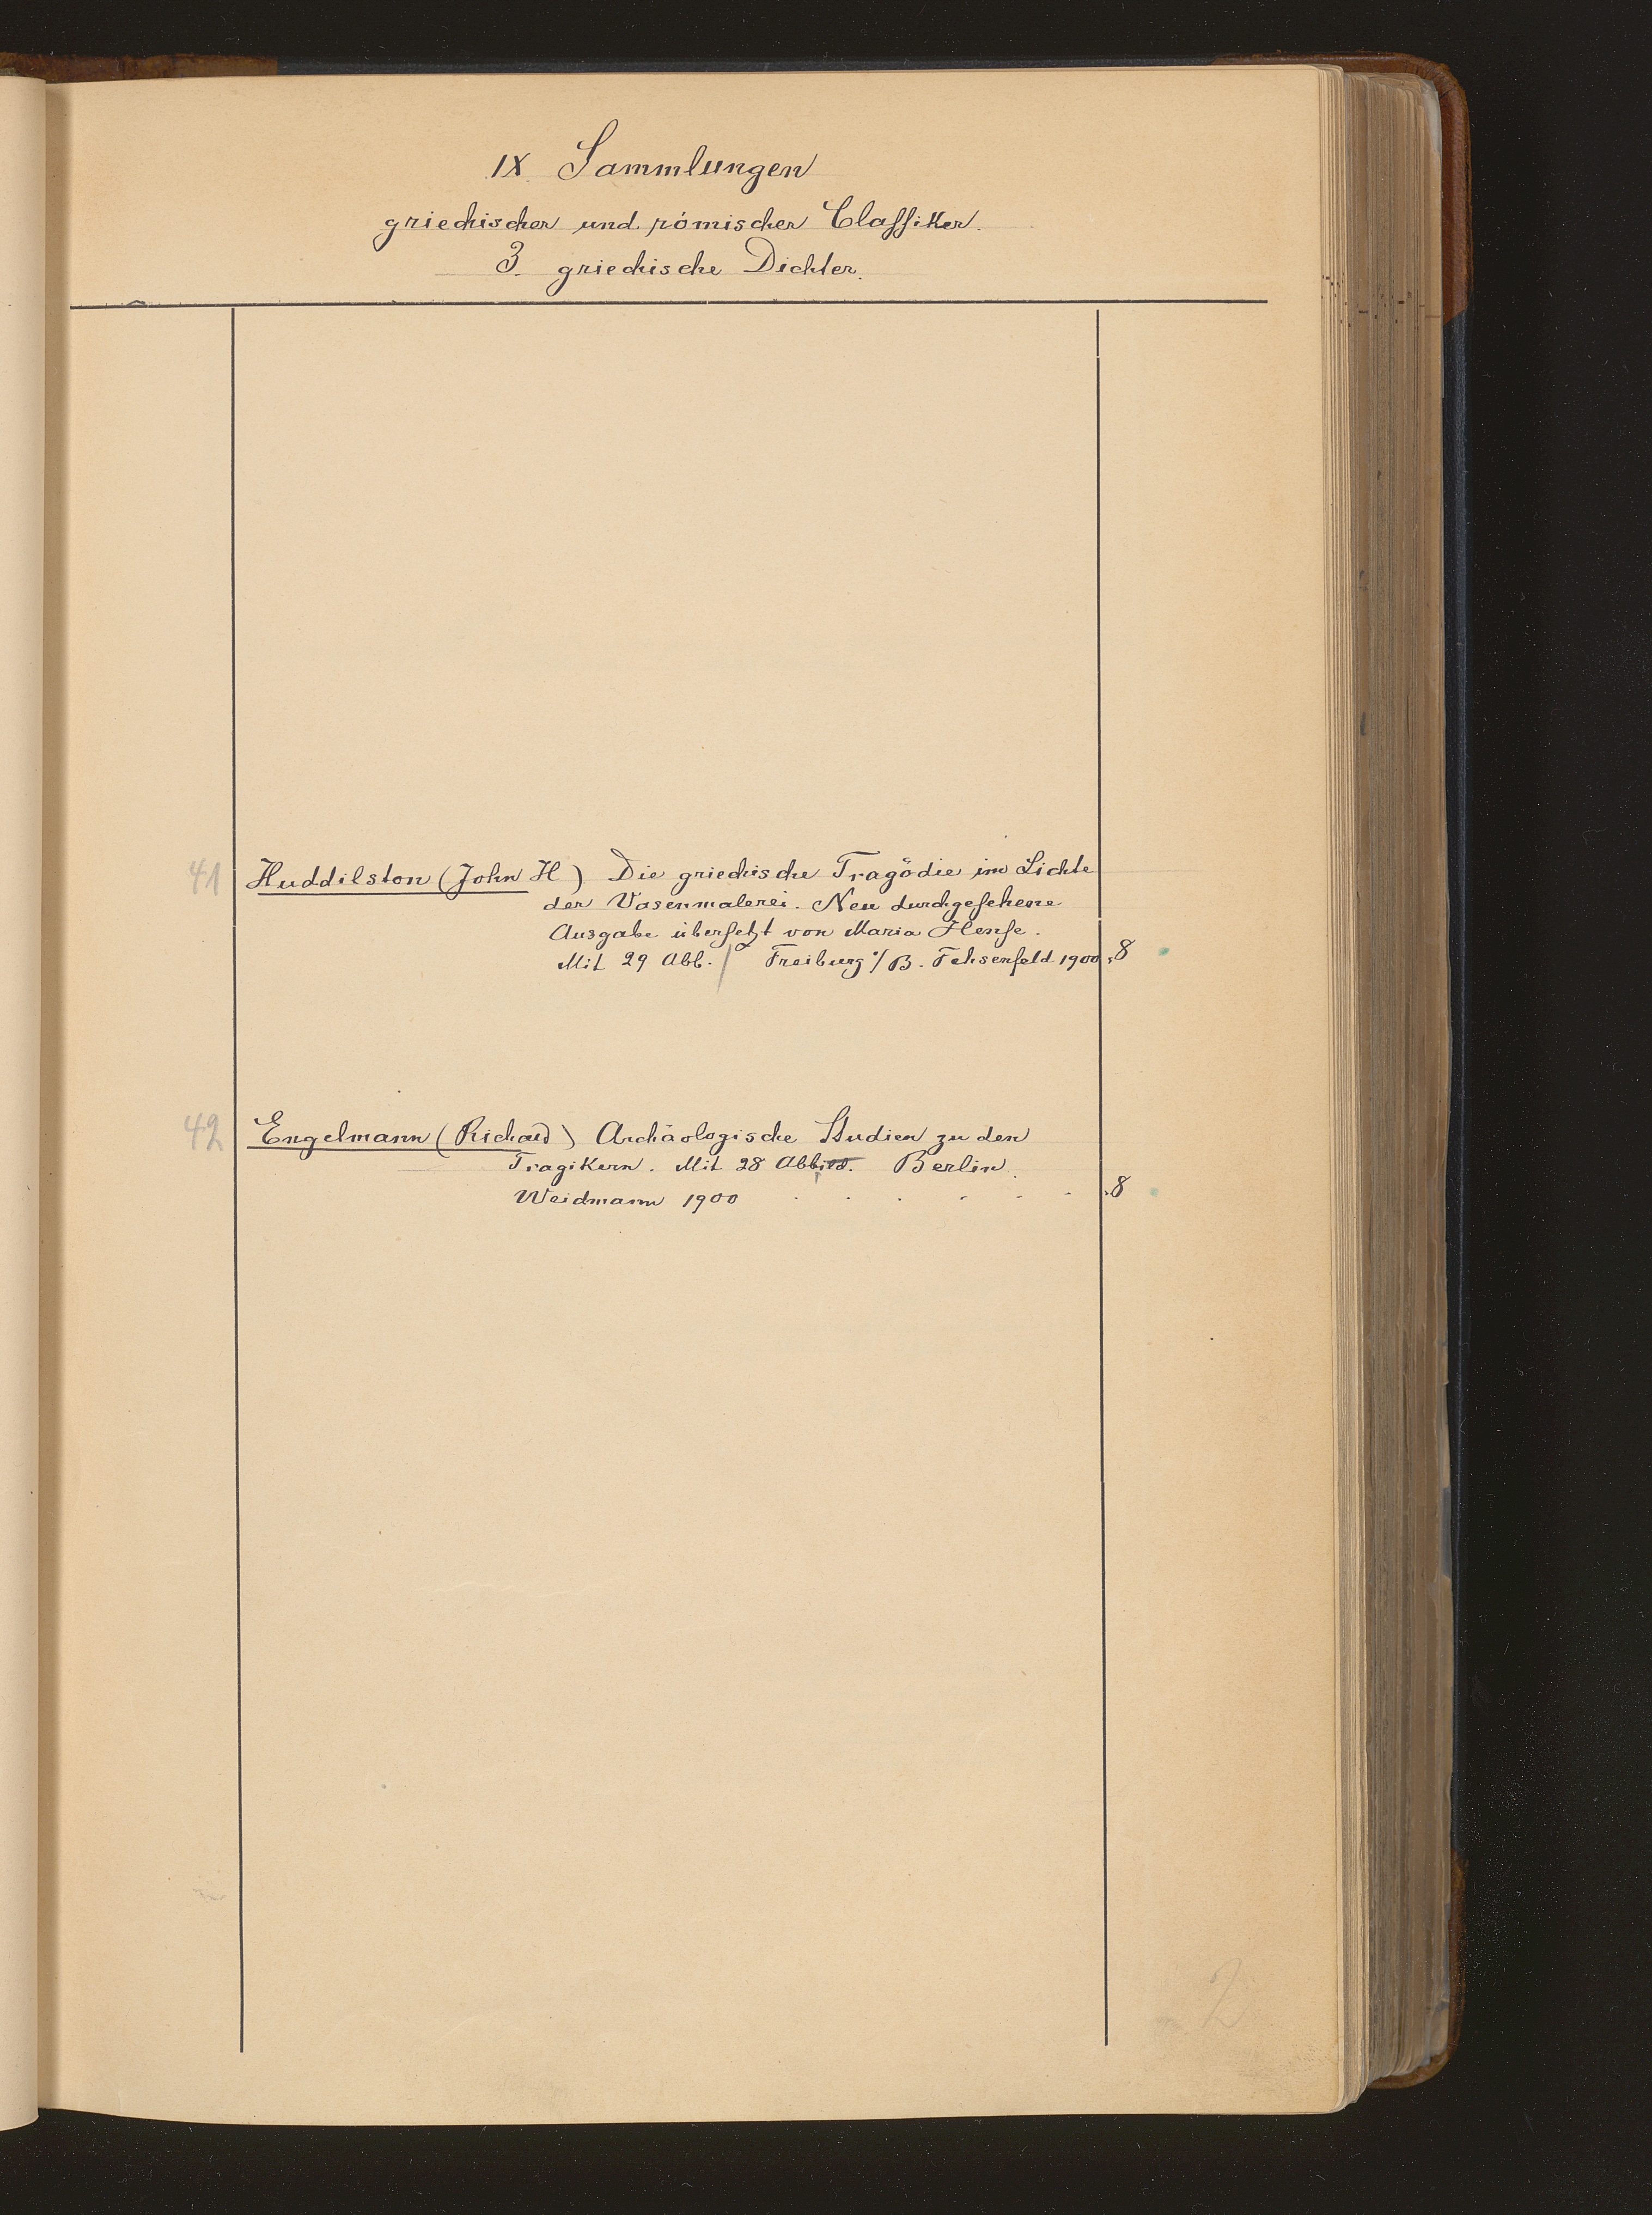 IX. Sammlungen
griechischer und römischer Claſsiker.
3. griechische Dichter.
41 Huddilston (John H) Die griechische Tragödie im Lichte
der Vasenmalerei. Neu durchgesehene
Ausgabe übersetzt von Maria Hense.
Mit 29 Abb. Freiburg i/B. Fehsenfeld 1900. 8
42 Engelmann (Richard) Archäologische Studien zu den
Tragikern. Mit 28 Abbild. Berlin.
Weidmann 1900 . . . . . . . 8
2